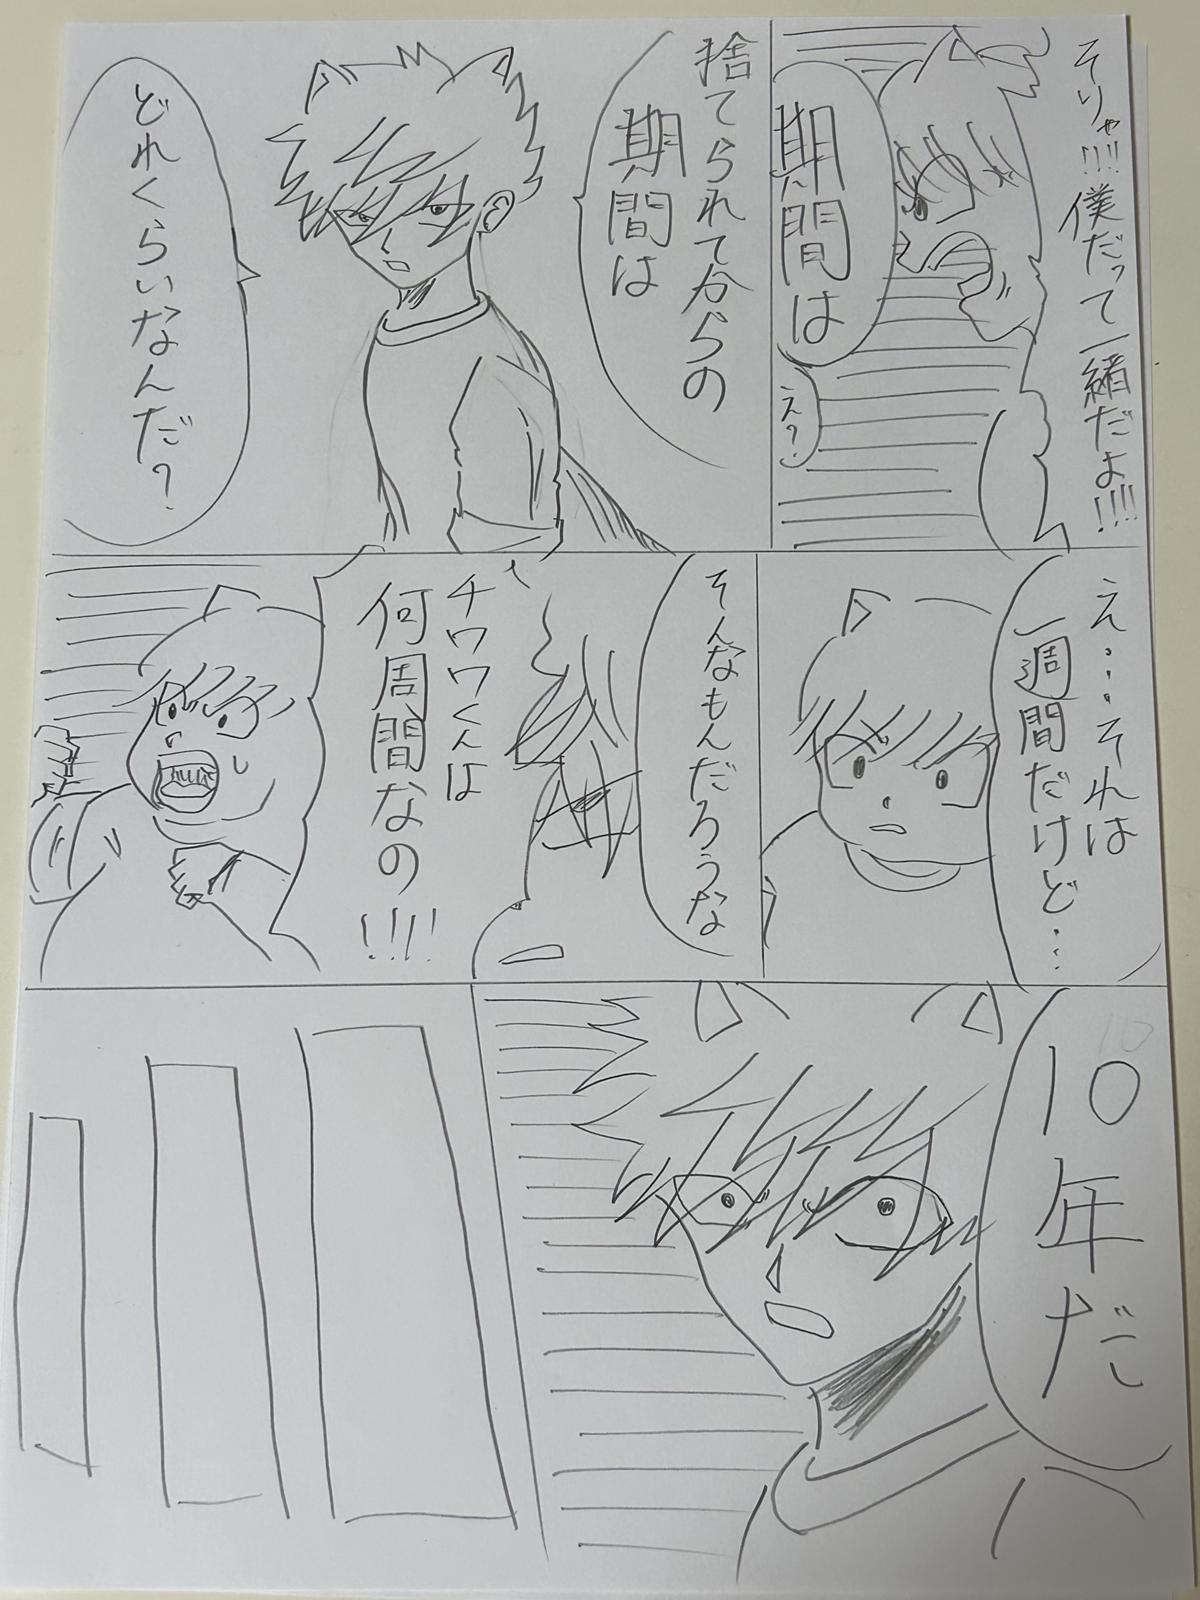 そりゃ!!!!僕だって一緒だよ!!!!
期間は
え?
捨てられてからの
期間は
どれくらいなんだ?
え...それは
一週間だけど...
そんなもんだろうな
チワワくんは
何周間なの!!!!
10年だ